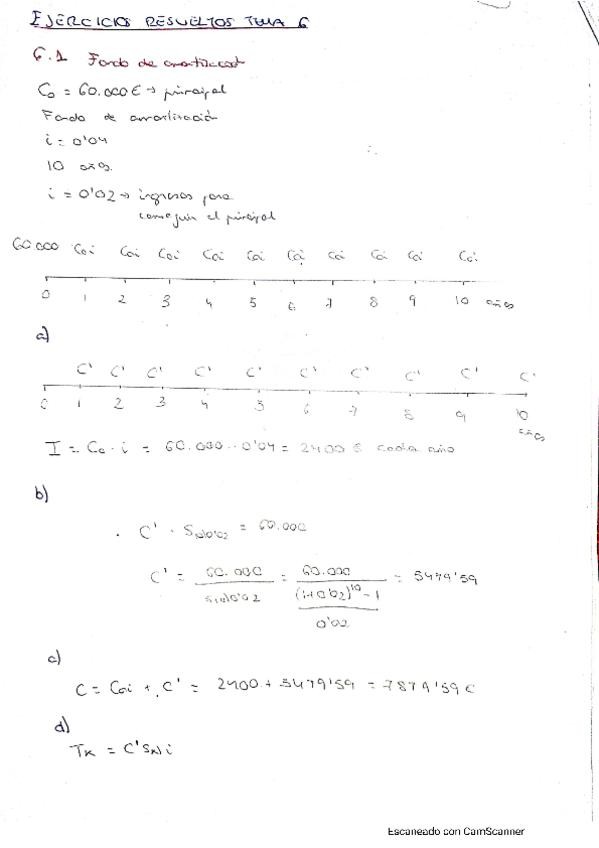 EJERCICIOS RESUELTOS TEMA 6
6.1 Fondo de amortización
C₀ = 60.000 € → principal
Fondo de amortización
i = 0'04
10 años.
i = 0'02 → ingresos para
conseguir el principal
60.000 C₀i C₀i C₀i C₀i C₀i C₀i C₀i C₀i C₀i C₀i
0 1 2 3 4 5 6 7 8 9 10 años
a)
C' C' C' C' C' C' C' C' C' C'
0 1 2 3 4 5 6 7 8 9 10
años
I = C₀ · i = 60.000 · 0'04 = 2400 € cada año
b)
· C' · S₁₀|0'02 = 60.000
C' = 60.000 / S₁₀|0'02 = 60.000 / (((1+0'02)¹⁰ - 1) / 0'02) = 5479'59
c)
C = C₀i + C' = 2400 + 5479'59 = 7879'59 €
d)
Tₖ = C' Sₖ| i
Escaneado con CamScanner